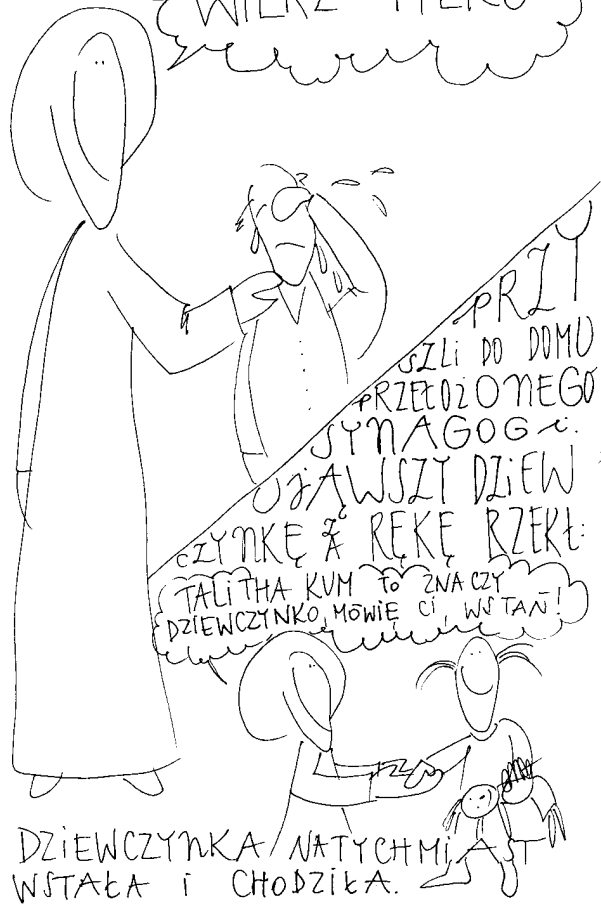 WIERZ TYLKO
PRZY
SZLI DO DOMU
PRZEŁOŻONEGO
SYNAGOGi.
UJĄWSZY DZIEW
CZYNKĘ ZA RĘKĘ RZEKŁ:
TALITHA KUM TO ZNACZY
DZIEWCZYNKO, MÓWIĘ CI, WSTAŃ!
DZIEWCZYNKA NATYCHMIAST
WSTAŁA I CHODZIŁA.